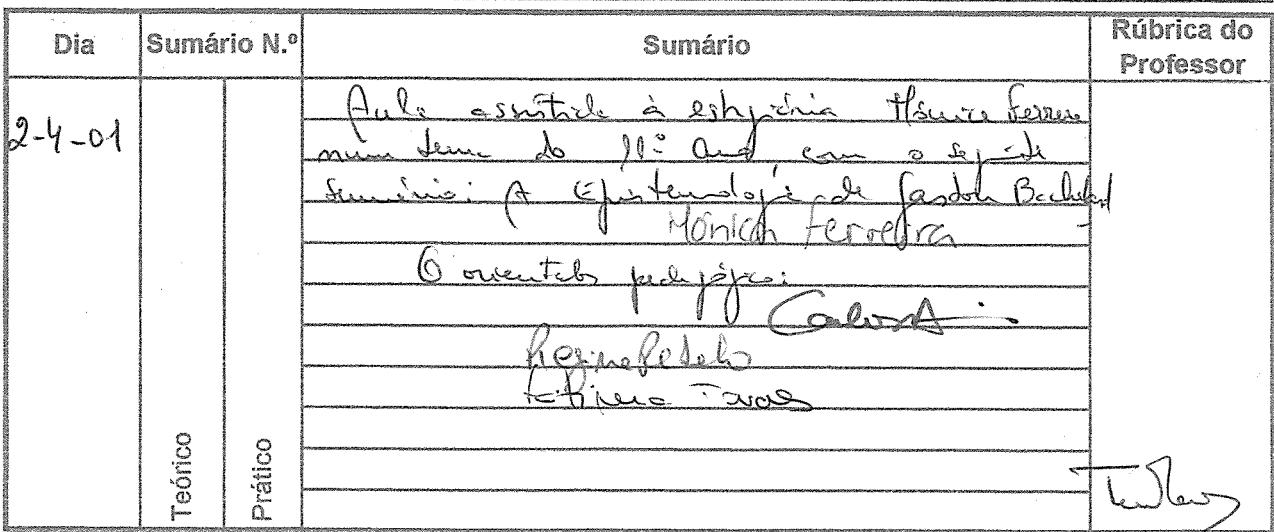 Dia Sumário N.º Sumário Rúbrica do Professor
2-4-01
Aula assistida à estagiária Mónica Ferreira
numa turma do 11º Ano, com o seguinte
sumário: A Epistemologia de Gaston Bachelard
Mónica Ferreira
O orientador pedagógico:
Teórico
Prático